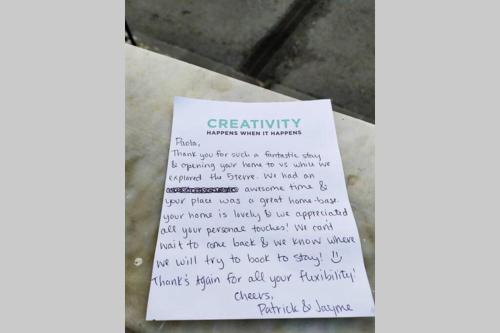 CREATIVITY
HAPPENS WHEN IT HAPPENS
Paola,
Thank you for such a fantastic stay
& opening your home to us while we
explored the 5terre. We had an
awesome time &
your place was a great home-base.
your home is lovely & we appreciated
all your personal touches! We can't
wait to come back & we know where
we will try to book to stay!
Thank's Again for all your flexibility!
Cheers,
Patrick & Jayme